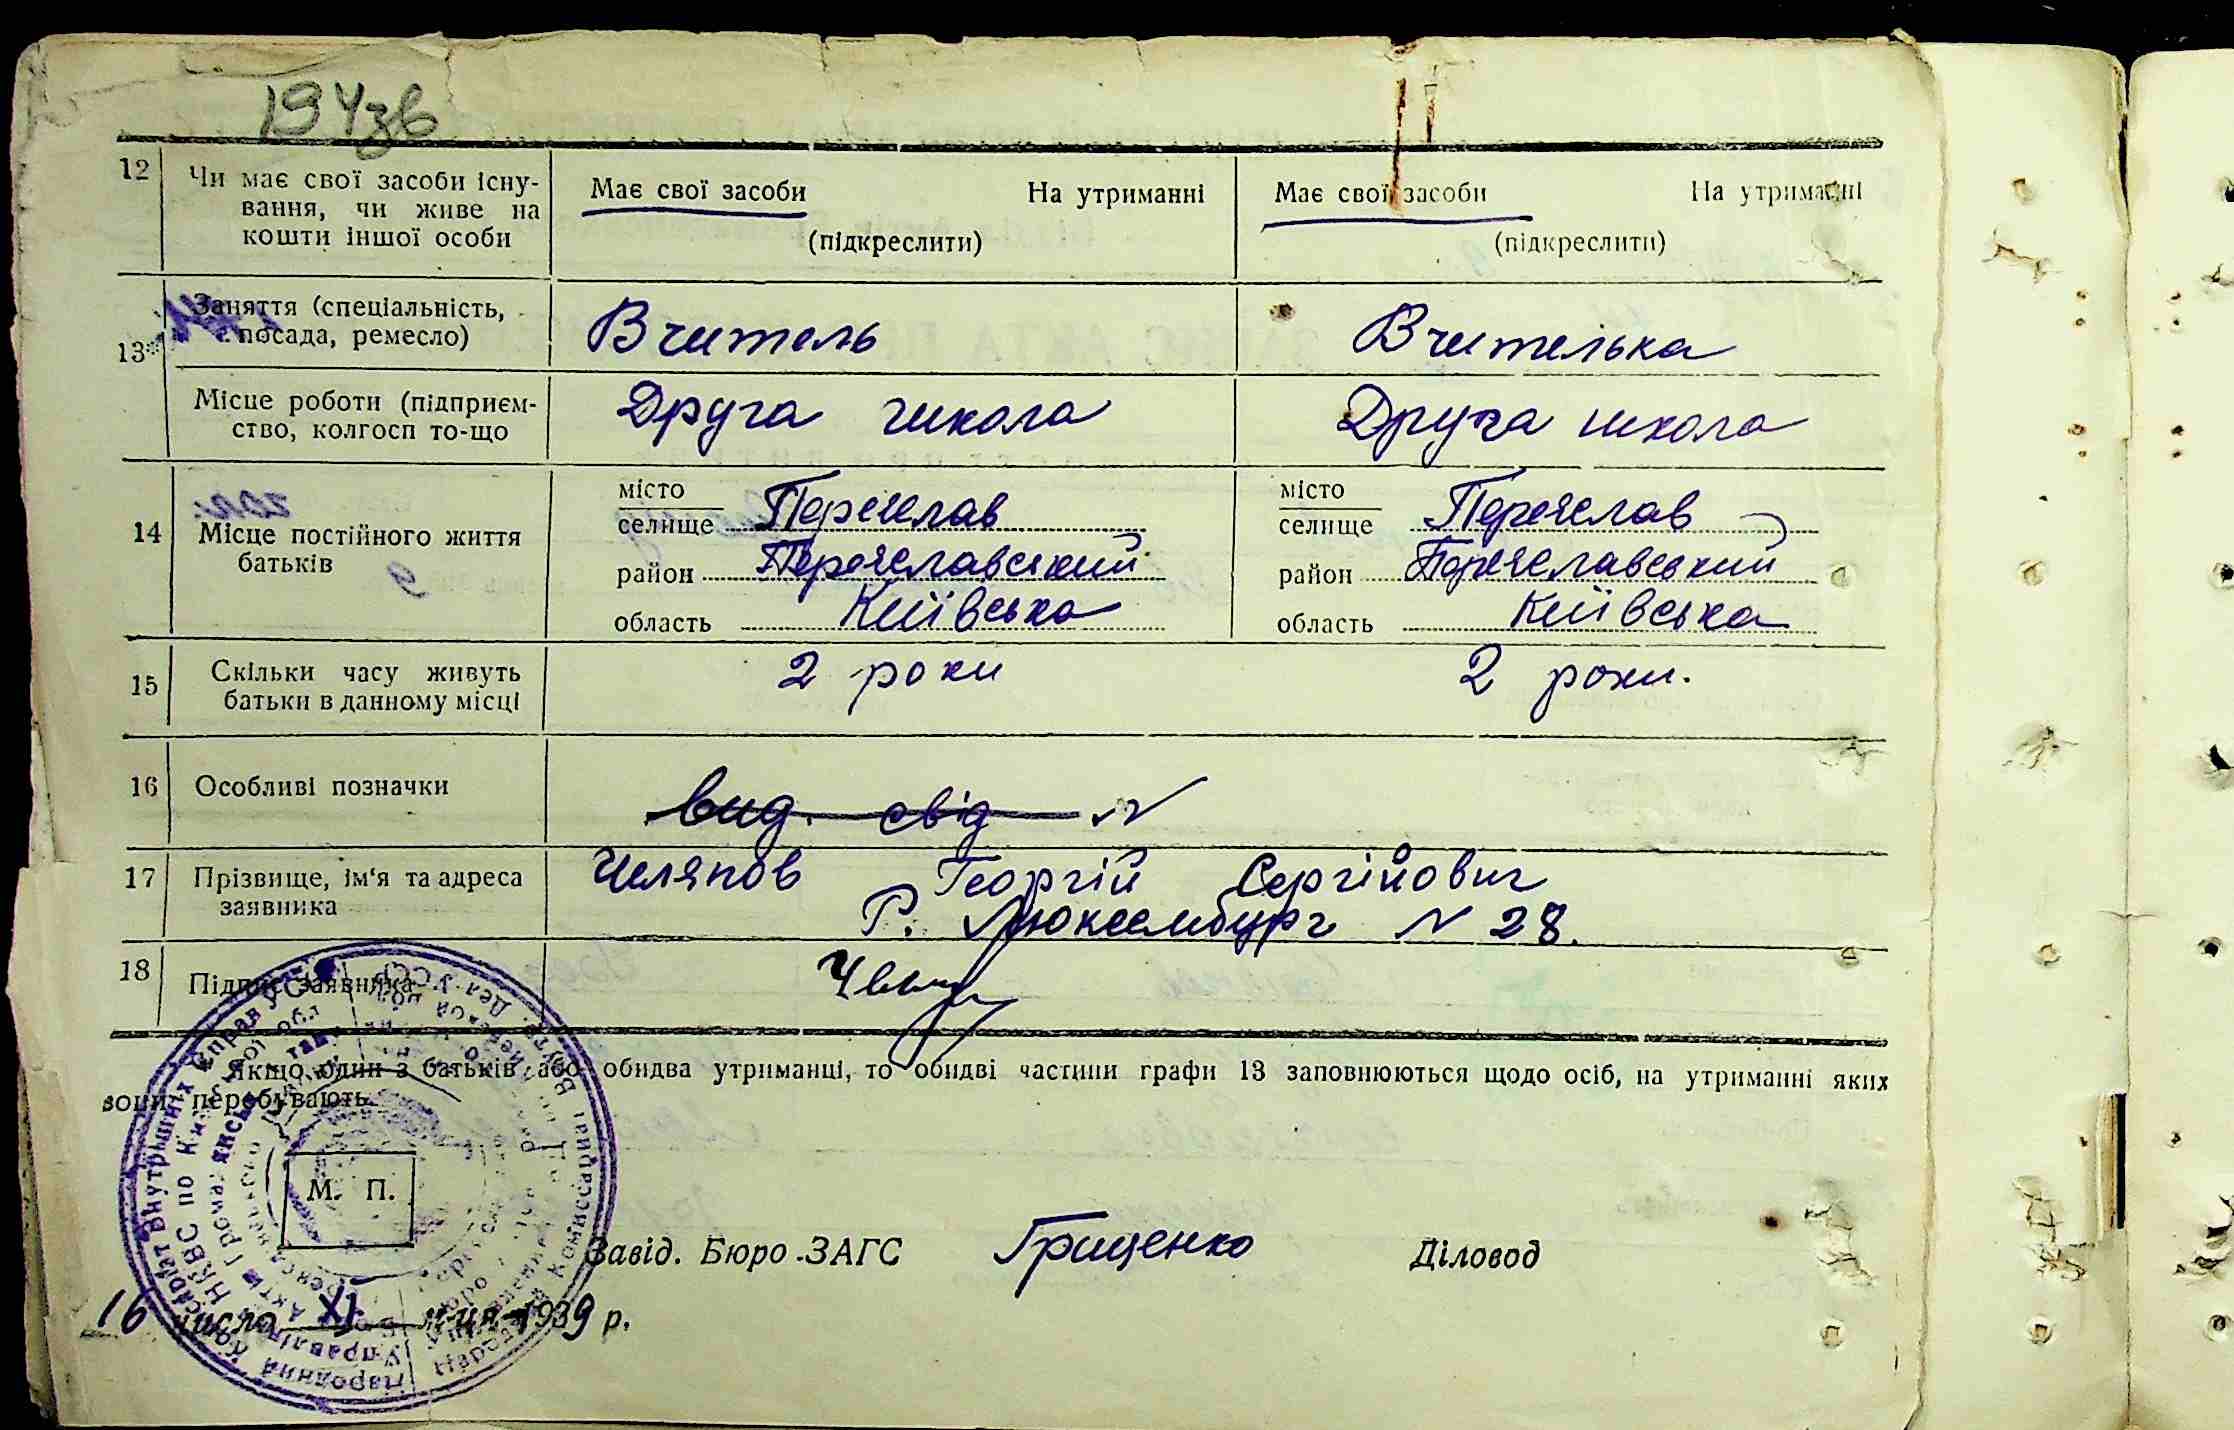 194зв
12 Чи має свої засоби існу- Має свої засоби На утриманні Має свої засоби На утриманні
вання, чи живе на
кошти іншої особи (підкреслити) (підкреслити)
13* Заняття (спеціальність, посада, ремесло) Вчитель Вчителька
Місце роботи (підприєм- Друга школа Друга школа
ство, колгосп то-що
14 Місце постійного життя батьків
місто Переяслав місто Переяслав
селище селище
район Переяславський район Переяславський
область Київська область Київська
15 Скільки часу живуть 2 роки 2 роки.
батьки в данному місці
16 Особливі позначки вид. свід №
17 Прізвище, ім'я та адреса Челяпов Георгій Сергійович
заявника Р. Люксембург № 28.
18 Підпис заявника
Якщо один з батьків або обидва утриманці, то обидві частини графи 13 заповнюються щодо осіб, на утриманні яких
вони перебувають.
М. П.
Завід. Бюро ЗАГС Гриценко Діловод
16 число XI м-ця 1939 р.